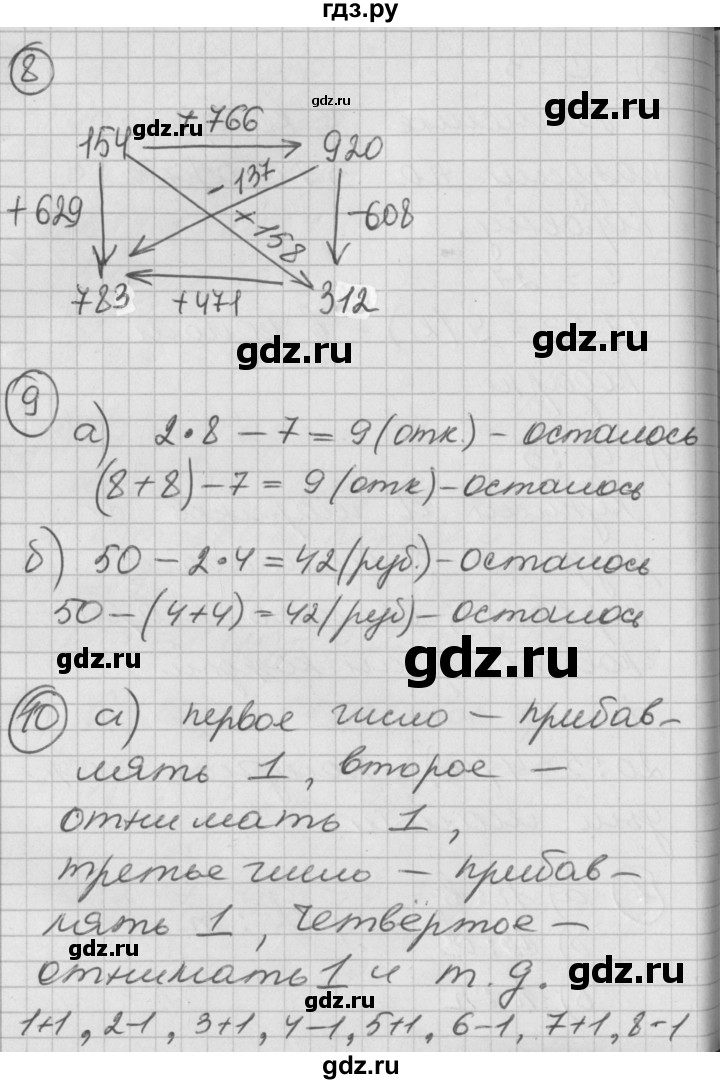 гдз.ру
8
gdz.ru
gdz.ru
154 +766 920
gdz.ru
+629 -137 +158 -608
783 +471 312
gdz.ru
gdz.ru
9
а) 2·8 - 7 = 9 (отк.) - осталось
(8+8) - 7 = 9 (отк) - осталось
б) 50 - 2·4 = 42 (руб.) - осталось
50 - (4+4) = 42 (руб) - осталось
gdz.ru
gdz.ru
10 а) первое число - прибав-
лять 1, второе -
отнимать 1,
третье число - прибав-
лять 1, четвёртое -
gdz.ru
отнимать 1 и т. д.
gdz.ru
gdz.ru
1+1, 2-1, 3+1, 4-1, 5+1, 6-1, 7+1, 8-1
gdz.ru